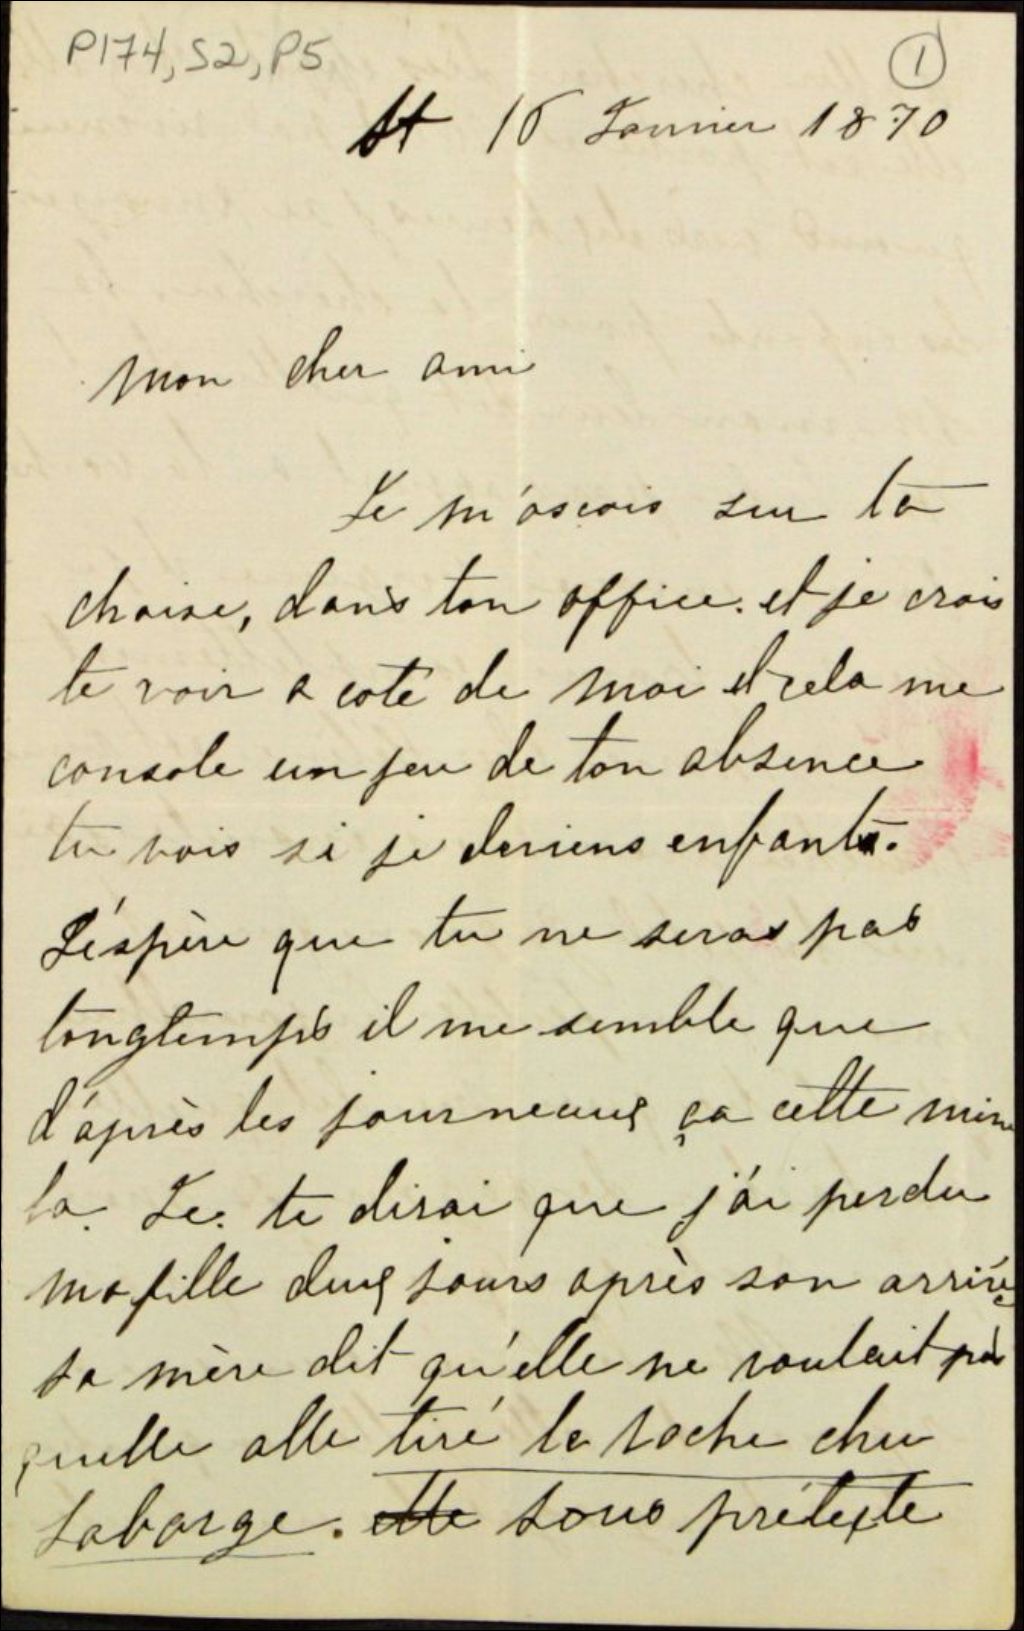 P174, S2, P5
1
St 16 Janvier 1870
Mon cher ami
Je m'aseois sur ta
chaise, dans ton office. et je crois
te voir a coté de moi et cela me
console un peu de ton absence
tu vois si je deviens enfant.
J'éspère que tu ne seras pas
longtemps il me semble que
d'après les journeaux ça cette mine
la. Je. te dirai que j'ai perdu
ma fille deux jours après son arrivé
sa mère dit qu'elle ne voulait pas
quelle alle tiré la vache cheu
Labarge. elle sous prétexte